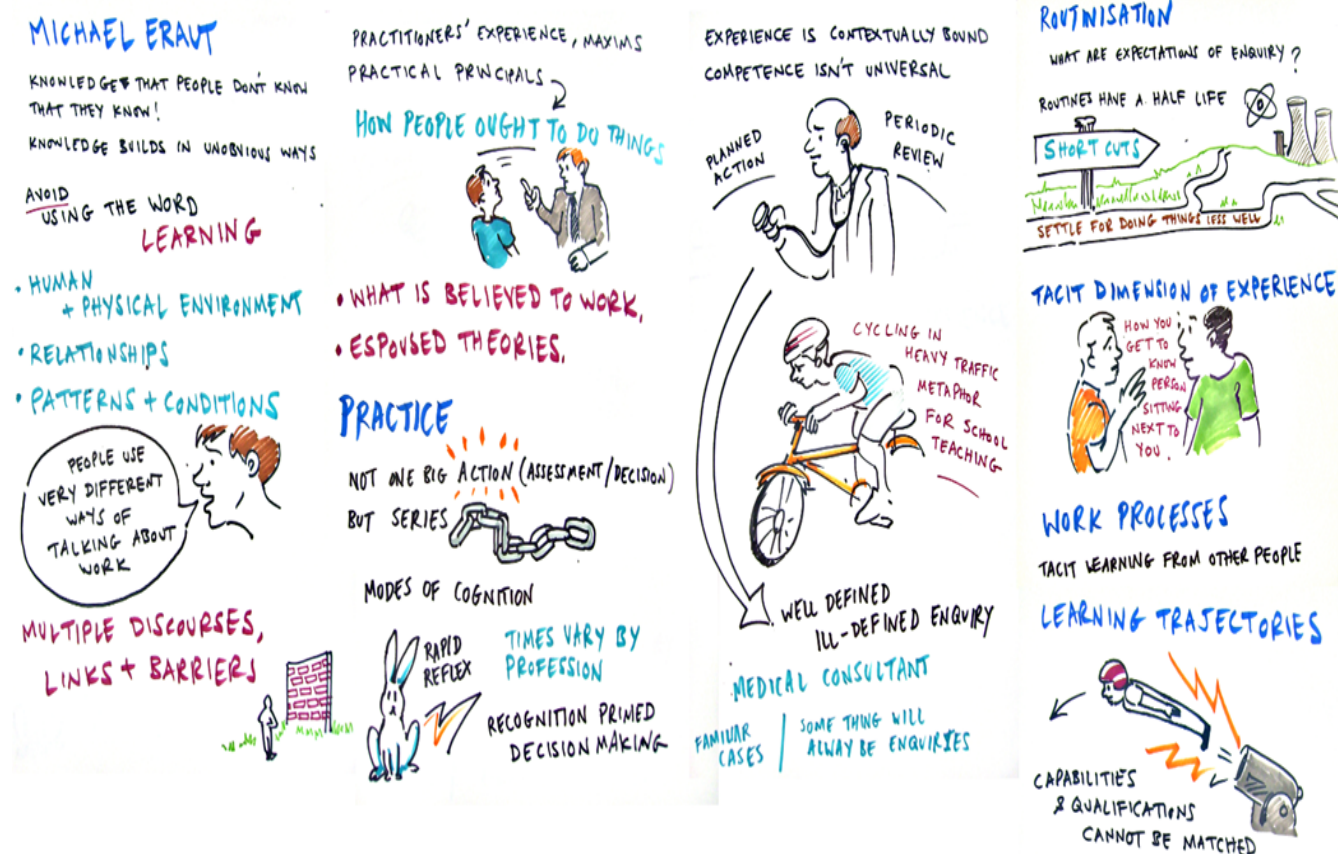 MICHAEL ERAUT
KNOWLEDGE THAT PEOPLE DON'T KNOW
THAT THEY KNOW!
KNOWLEDGE BUILDS IN UNOBVIOUS WAYS
AVOID
USING THE WORD
LEARNING
• HUMAN
+ PHYSICAL ENVIRONMENT
• RELATIONSHIPS
• PATTERNS + CONDITIONS
PEOPLE USE
VERY DIFFERENT
WAYS OF
TALKING ABOUT
WORK
MULTIPLE DISCOURSES,
LINKS + BARRIERS
PRACTITIONERS' EXPERIENCE, MAXIMS
PRACTICAL PRINCIPALS
HOW PEOPLE OUGHT TO DO THINGS
• WHAT IS BELIEVED TO WORK.
• ESPOUSED THEORIES.
PRACTICE
NOT ONE BIG ACTION (ASSESSMENT/DECISION)
BUT SERIES
MODES OF COGNITION
RAPID
REFLEX
TIMES VARY BY
PROFESSION
RECOGNITION PRIMED
DECISION MAKING
EXPERIENCE IS CONTEXTUALLY BOUND
COMPETENCE ISN'T UNIVERSAL
PLANNED
ACTION
PERIODIC
REVIEW
CYCLING IN
HEAVY TRAFFIC
METAPHOR
FOR SCHOOL
TEACHING
WELL DEFINED
ILL-DEFINED ENQUIRY
MEDICAL CONSULTANT
FAMILIAR
CASES
SOME THING WILL
ALWAY BE ENQUIRIES
ROUTINISATION
WHAT ARE EXPECTATIONS OF ENQUIRY?
ROUTINES HAVE A HALF LIFE
SHORT CUTS
SETTLE FOR DOING THINGS LESS WELL
TACIT DIMENSION OF EXPERIENCE
HOW YOU
GET TO
KNOW
PERSON
SITTING
NEXT TO
YOU.
WORK PROCESSES
TACIT LEARNING FROM OTHER PEOPLE
LEARNING TRAJECTORIES
CAPABILITIES
& QUALIFICATIONS
CANNOT BE MATCHED